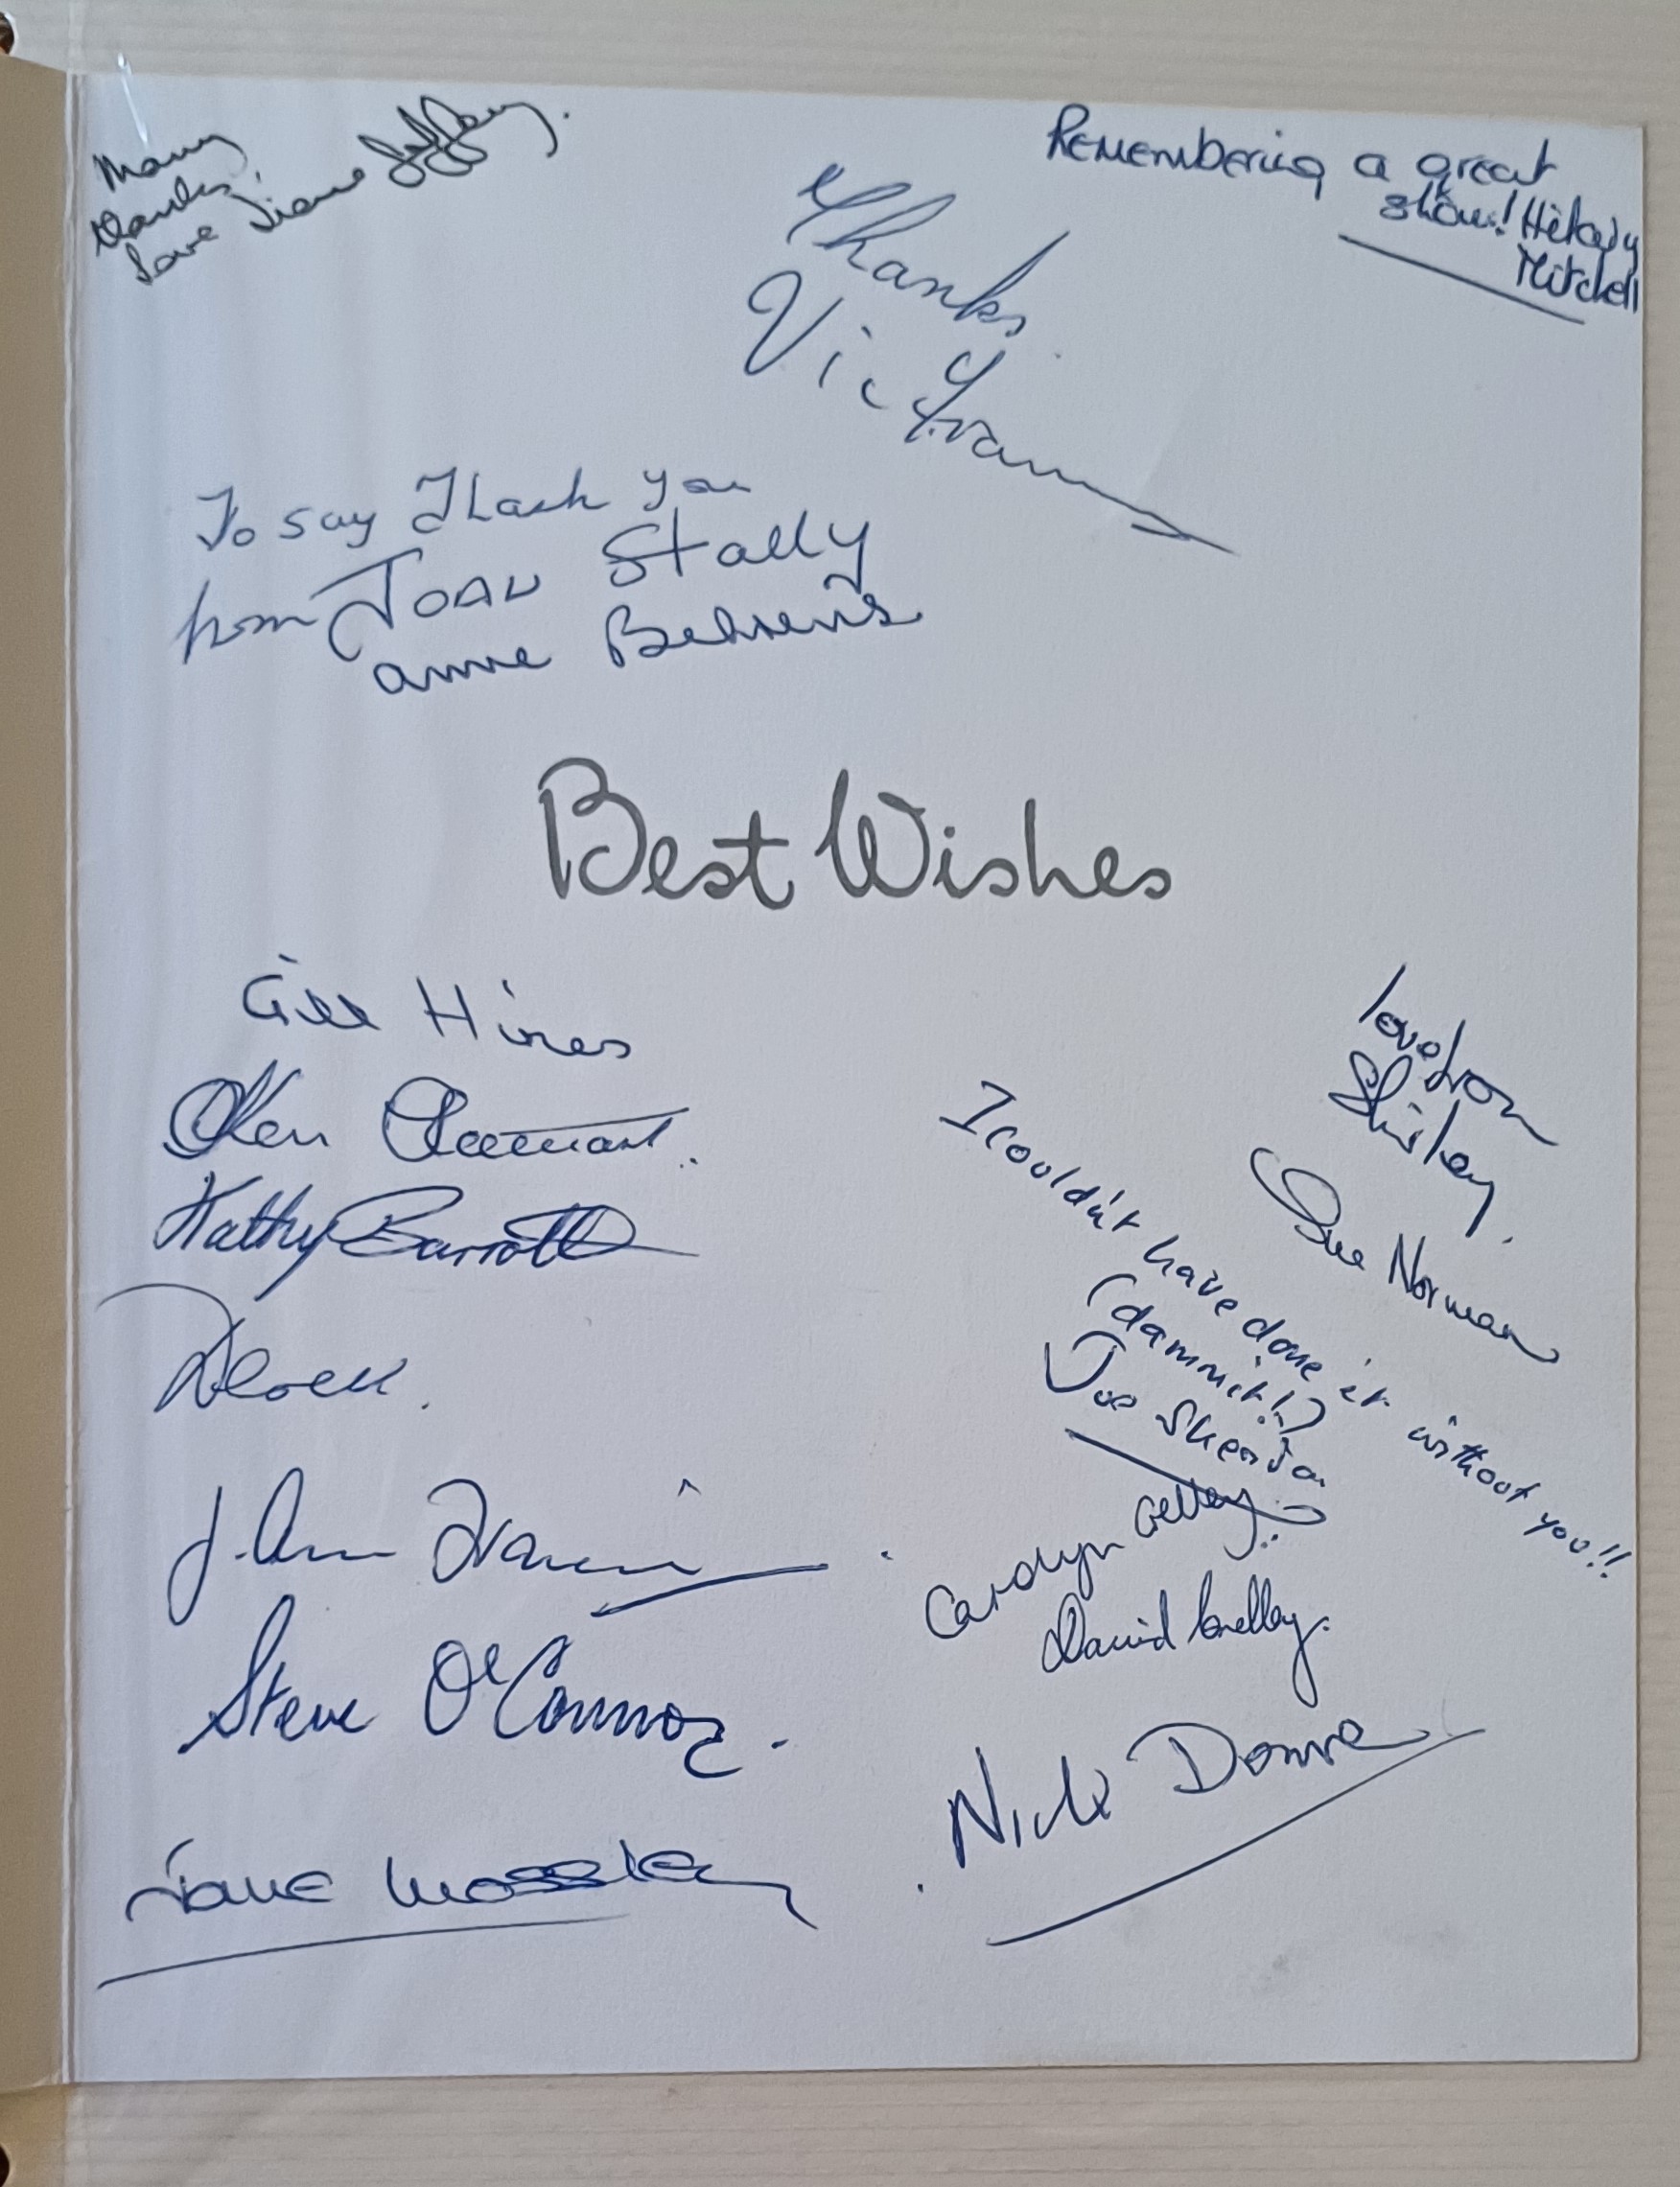 Many
thanks,
love Diane
Remembering a great
show! Hilary
Mitchell
Thanks
Vic
To say Thank you
from JOAN Stally
anne Behrens
Best Wishes
Gill Hines
Ken
Kathy Barrott
Derek.
J. Ann
Steve O'Connor.
Jane Mossley
love from
Shirley.
Sue Norman
I couldn't have done it without you!!
(dammit!!)
Joe
Carolyn
David
Nick Donne